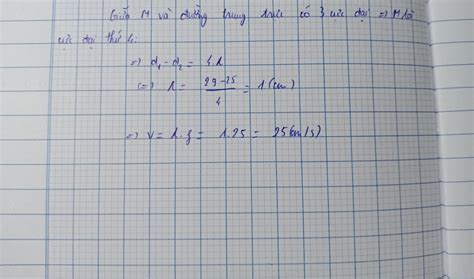 Giữa M và đường trung trực có 3 cực đại => M là
cực đại thứ 4:
=> d₁ - d₂ = 4.λ
(=) λ = (29-25)/4 = 1 (cm)
=> V = λ.f = 1.25 = 25(cm/s)